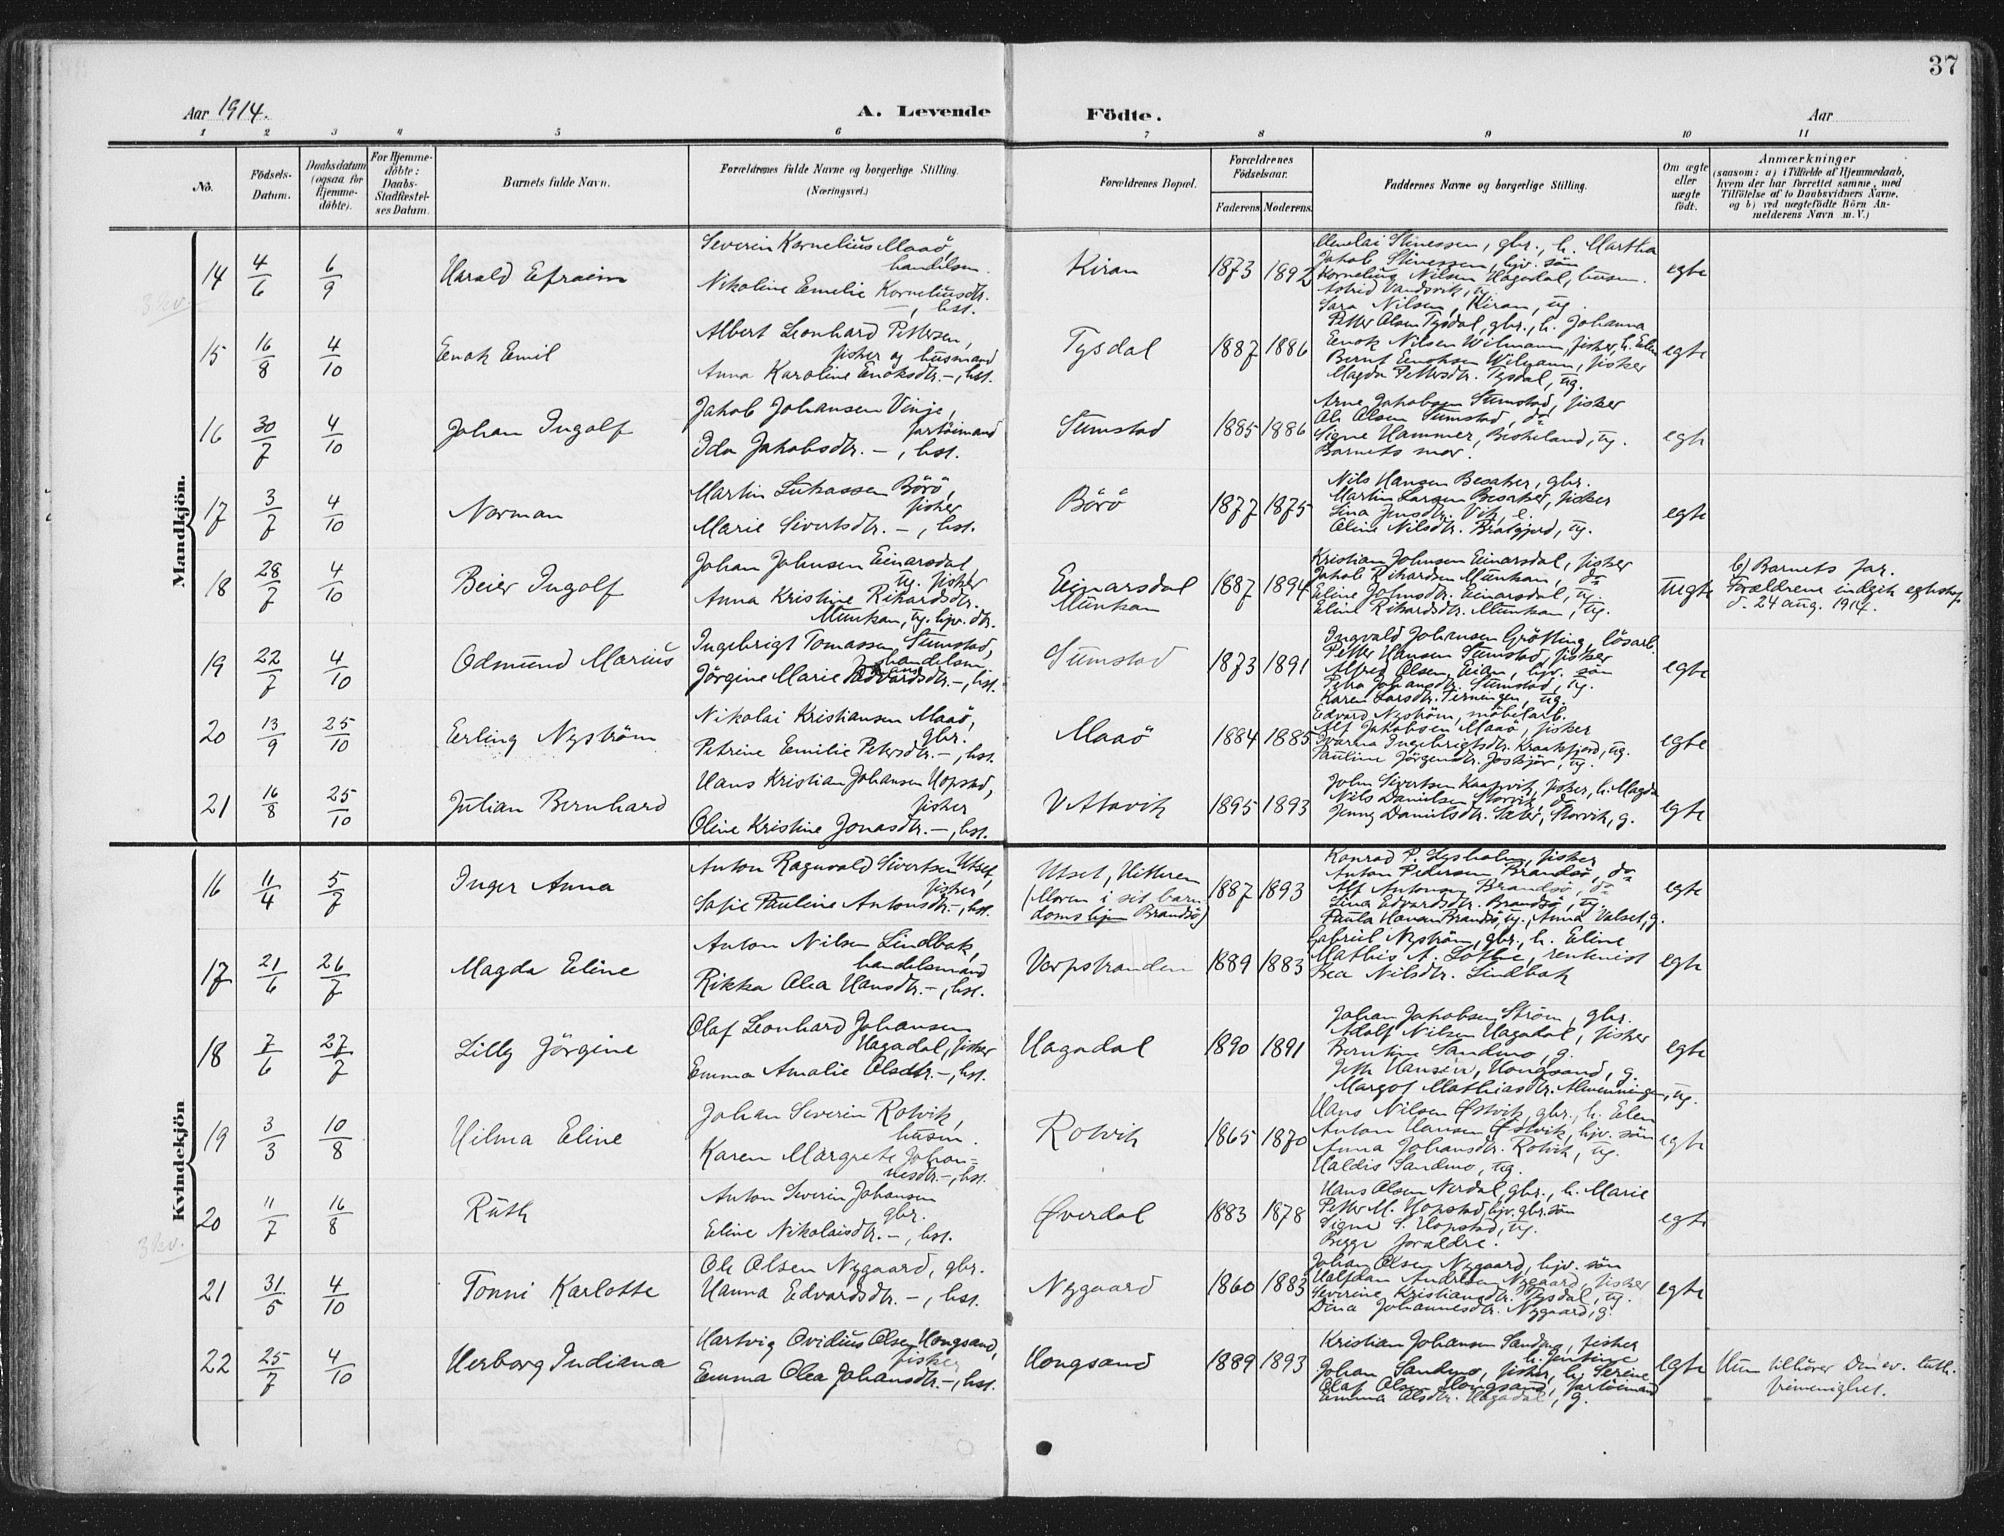 37
Aar 1914.
A. Levende
Födte.
Aar
1 2 3 4 5 6 7 8 9 10 11
No.
Födsels-
Datum.
Daabsdatum
(ogsaa for
Hjemme-
döbte).
For Hjemme-
döbte:
Daabs-
Stadfæstel-
ses Datum.
Barnets fulde Navn.
Forældrenes fulde Navne og borgerlige Stilling.
(Næringsvei.)
Forældrenes Bopæl.
Forældrenes
Födselsaar.
Faderens
Moderens
Faddernes Navne og borgerlige Stilling.
Om ægte
eller
uægte
födt.
Anmærkninger
(saasom: a) i Tilfælde af Hjemmedaab,
hvem der har forrettet samme, med
Tilföielse af to Daabsvidners Navne.
og b) ved uægtefödte Börn An-
melderens Navn m. V.)
Mandkjön.
14 4/6 6/9 Harald Efraim
Severin Kornelius Maaö,
handelsm.
Nikoline Emelie Korneliusdtr.
—, hst.
Kiran 1873 1892
Menelai Stinessen, gbr., h. Martha
Jakob Stinessen, hjv. sön
Kornelius Nilsen Hagadal, husm.
Astrid Vandsvik, ug.
Sara Nilsen, Kiran, ug.
egte
3 kv.
15 16/8 4/10 Enok Emil
Albert Leonhard Pettersen,
fisker og husmand
Anna Karoline Enoksdtr. —, hst.
Tysdal 1887 1886
Petter Olsen Tysdal, gbr., h. Johanna
Enok Nilsen Wilmann, fisker, h. Elen
Bernt Enoksen Wilmann, fisker
Magda Pettersdtr. Tysdal, ug.
egte
16 30/7 4/10 Johan Ingolf
Jakob Johansen Vinje,
fartöimand
Ida Jakobsdtr. —, hst.
Sumstad 1885 1886
Arne Jakobsen Sumstad, fisker
Ole Olsen Sumstad, do
Signe Hammer, Beskeland, ug.
Barnets mor.
egte
17 3/7 4/10 Norman
Martin Lukassen Börö,
fisker
Marie Sivertsdtr. —, hst.
Börö 1877 1875
Nils Hansen Besaker, gbr.
Martin Larsen Besaker, fisker
Lina Jensdtr. Vik, e.
Oline Nilsdtr. Bratgjerd, ug.
egte
18 28/7 4/10 Beier Ingolf
Johan Johnsen Einarsdal
ug. fisker
Anna Kristine Rikardsdtr.
Munkan, ug. hjv. dtr.
Einarsdal
Munkan
1887 1894
Kristian Johnsen Einarsdal, fisker
Jakob Rikardsen Munkan, do
Eline Johnsdtr. Einarsdal, ug.
Elise Rikardsdtr. Munkan, ug.
uegte
b) Barnets far.
Forældrene indgik egteskap
d. 24 aug. 1914.
19 22/7 4/10 Odmund Marius
Ingebrigt Tomassen Sumstad,
handelsm.
Jörgine Marie Edvardsdtr. —, hst.
Sumstad 1873 1891
Ingvald Johansen Grötting, lösarb.
Petter Hansen Sumstad, fisker
Alfred Olsen Eian, hjv. sön
Petra Johansdtr. Sumstad, ug.
Karen Larsdtr. Terningen, ug.
egte
20 13/9 25/10 Erling Nyström
Nikolai Kristiansen Maaö,
gbr.
Petrine Emilie Petersdtr. —, hst.
Maaö 1884 1885
Edvard Nyström, möbelarb.
Alf Jakobsen Maaö, fisker
Ingebrigtsdtr. Kraakfjord, ug.
Pauline Jörgensdtr. ug.
egte
21 16/8 25/10 Julian Bernhard
Hans Kristian Johansen Hopstad,
fisker
Oline Kristine Jonasdtr. —, hst.
Vettavik 1895 1893
John Sivertsen Kaapvik, fisker, h. Magda
Nils Danielsen Storvik, do
Jenny Danielsdtr. Sæter, Storvik, g.
egte
Kvindekjön
16 11/4 5/7 Inger Anna
Anton Ragnvald Sivertsen Utset,
fisker
Sofie Pauline Antonsdtr. —, hst.
Utset, Hitteren
(Moren i sit barn-
domshjem Brandsö)
1887 1893
Konrad P. Lysholm, fisker
Anton Pedersen Brandsö, do
Alf Antonsen Brandsö, do
Lina Edvardsdtr. Brandsö, ug.
Paula Hansen Brandsö, ug., Anna Valset, g.
egte
17 21/6 26/7 Magda Eline
Anton Nilsen Lindbak,
handelsmand
Rikka Olea Hansdtr. —, hst.
Verpstranden 1889 1883
Gabriel Nyström, gbr., h. Eline
Mathis A. Lothe, rentenist
Bea Nilsdtr. Lindbak
egte
18 7/6 27/7 Lilly Jörgine
Olaf Leonhard Johansen
Hagadal, fisker
Emma Amalie Olsdtr. —, hst.
Hagadal 1890 1891
Johan Jakobsen Ström, gbr.
Adolf Nilsen Hagadal, fisker
Berntine Sandmo, g.
Jette Hansen, Hongsand, g.
Margot Mathiasdtr. Almenningen, ug.
egte
19 3/3 10/8 Hilma Eline
Johan Severin Rotvik,
husm.
Karen Margrete Johan-
nesdtr. —, hst.
Rotvik 1865 1870
Hans Nilsen Østvik, gbr., h. Elen
Anton Hansen Østvik, hjv. sön
Anna Johansdtr. Rotvik, ug.
Haldis Sandmo, ug.
egte
20 11/7 16/8 Ruth
Anton Severin Johansen
gbr.
Eline Nikolaisdtr. —, hst.
Øverdal 1883 1878
Hans Olsen Nerdal, gbr., h. Marie
Petter M. Hopstad, hjv. gbr. sön
Signe S. Hopstad, ug.
Begge foræeldre.
egte
3 kv.
21 31/5 4/10 Tonni Karlotte
Ole Olsen Nygaard, gbr.
Hanna Edvardsdtr. —, hst.
Nygaard 1860 1883
Johan Olsen Nygaard, hjv. sön
Halfdan Andresen Nygaard, fisker
Severine Kristiansdtr. Tysdal, ug.
Dina Johannesdtr. Nygaard, g.
egte
22 25/7 4/10 Herborg Indiana
Hartvig Ovidius Olsen Hongsand,
fisker
Emma Olea Johansdtr. —, hst.
Hongsand 1889 1893
Kristian Johansen Sandmo, fisker
h. Jentine
Johan Sandmo, fisker, h. Serine
Olaf Olsen Hongsand, fartöimand
Emma Olsdtr. Hagadal, g.
egte
Hun tilhörer Den ev. luth.
frimenighet.